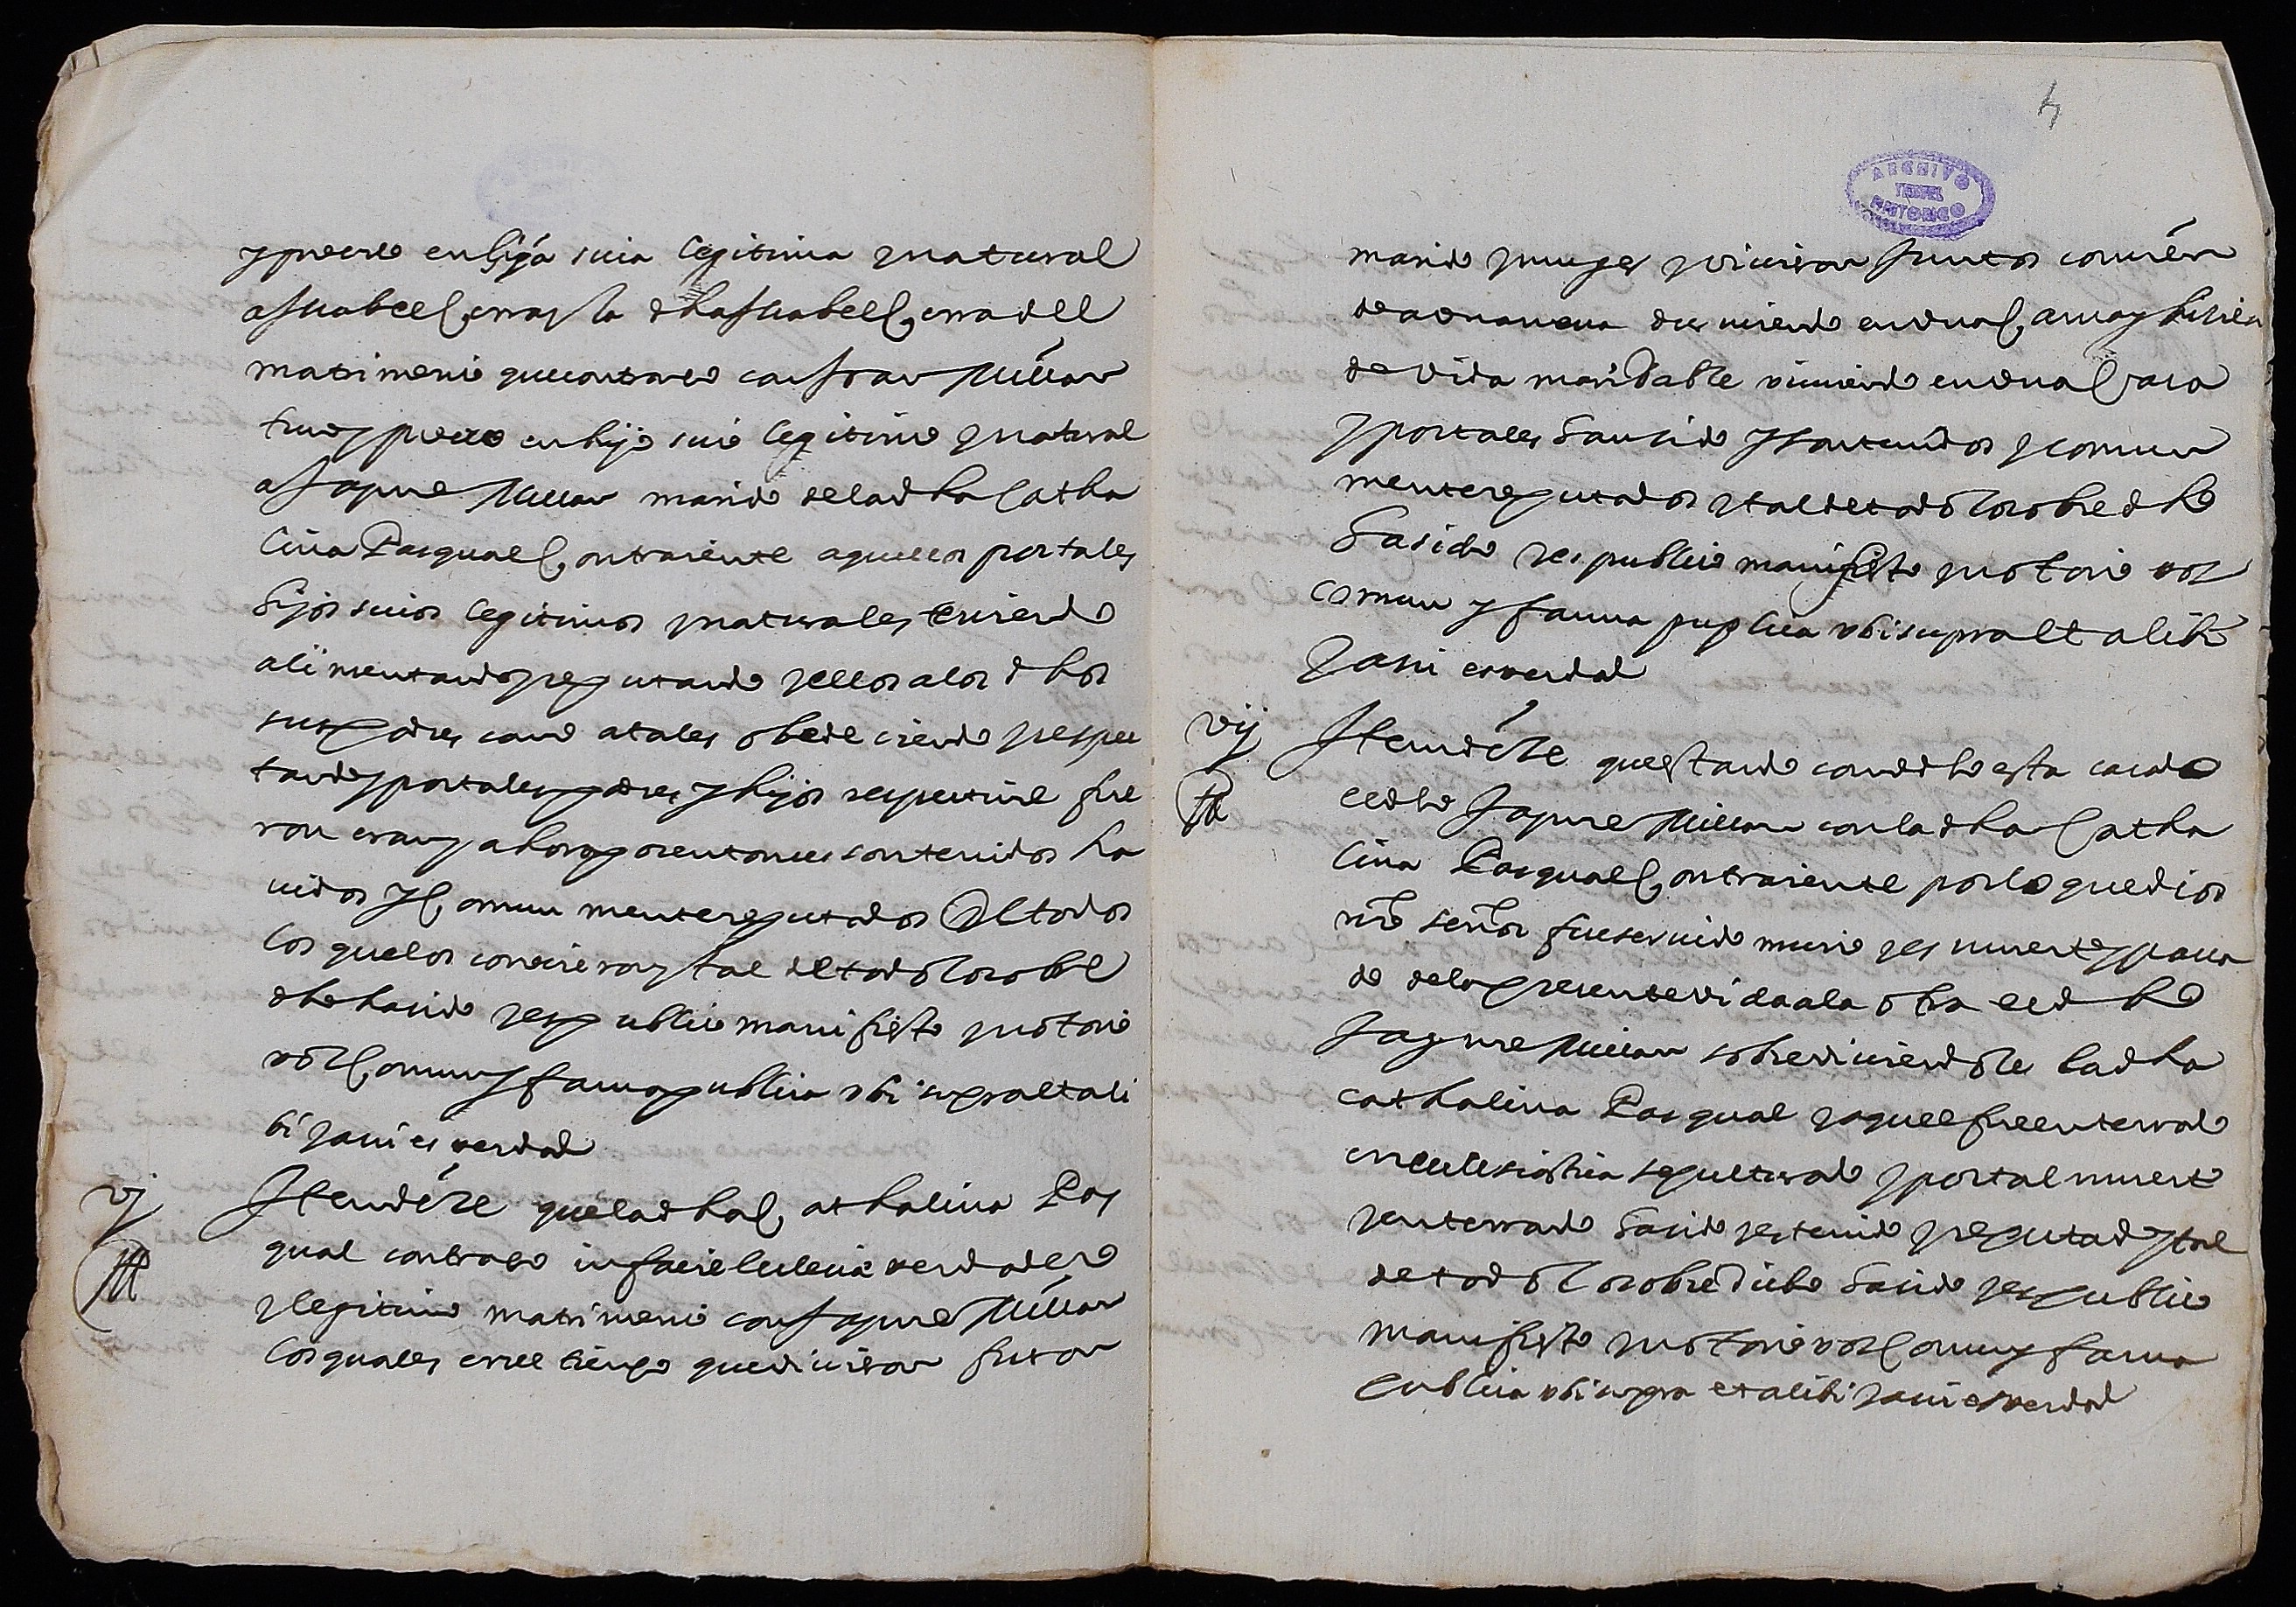 y procreo en hija suia legitima y natural
a Isabel Cerra y la dha Isabel Cerra dell
matrimonio que contraxo con Joan Millan
tuuo y procreo en hijo suio legitimo y natural
a Jayme Millan marido de la dha Catha
lina Pasqual Contraiente aquellos por tales
hijos suios legitimos y naturales teniendo
alimentando y reputando y ellos a los dhos
sus padres como a tales obedeciendo y respec
tando y por tales padres y hijos respectiue fue
ron eran y ahora por entonces son tenidos ha
uidos y Comunmente reputados de todos
los que los conocieron y tal de todo lo sobre
dho ha sido y es publico manifiesto y notorio
voz Comun y fama publica vbi supra et ali
bi y assi es verdad
vj
Iten dize que la dha Cathalina Pas
qual contraxo in facie eclesiæ verdadero
y legitimo matrimonio con Jayme Millan
los quales en el tiempo que viuieron fueron
4
ARCHIVO
TERUEL
HISTORICO
marido y muger y viuieron juntos comien
do a vna mesa durmiendo en vna Cama y hazien
do vida maridable viuiendo en vna Casa
y por tales han sido y son tenidos y comun
mente reputados y tal de todo lo sobre dho
ha sido y es publico manifiesto y notorio voz
comun y fama puplica vbi supra et alibi
y assi es verdad
vij
Iten dize que estando como dho esta casado
el dho Jayme Millan con la dha Catha
lina Pasqual Contraiente por lo que dios
nro señor fue seruido murio y es muerto y passa
do de la presente vida a la otra el dho
Jayme Millan sobreuiuiendole la dha
cathalina Pasqual y aquel fue enterrado
en eclesiastica sepultura y por tal muerto
y enterrado ha sido y es tenido y reputado y tal
de todo lo sobredicho ha sido y es publico
manifiesto y notorio voz Comun y fama
publica vbi supra et alibi y assi es verdad